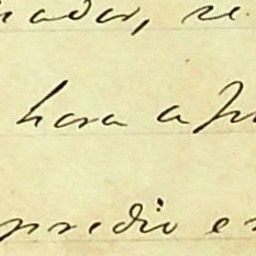 nador, se
hora a fr
predio e